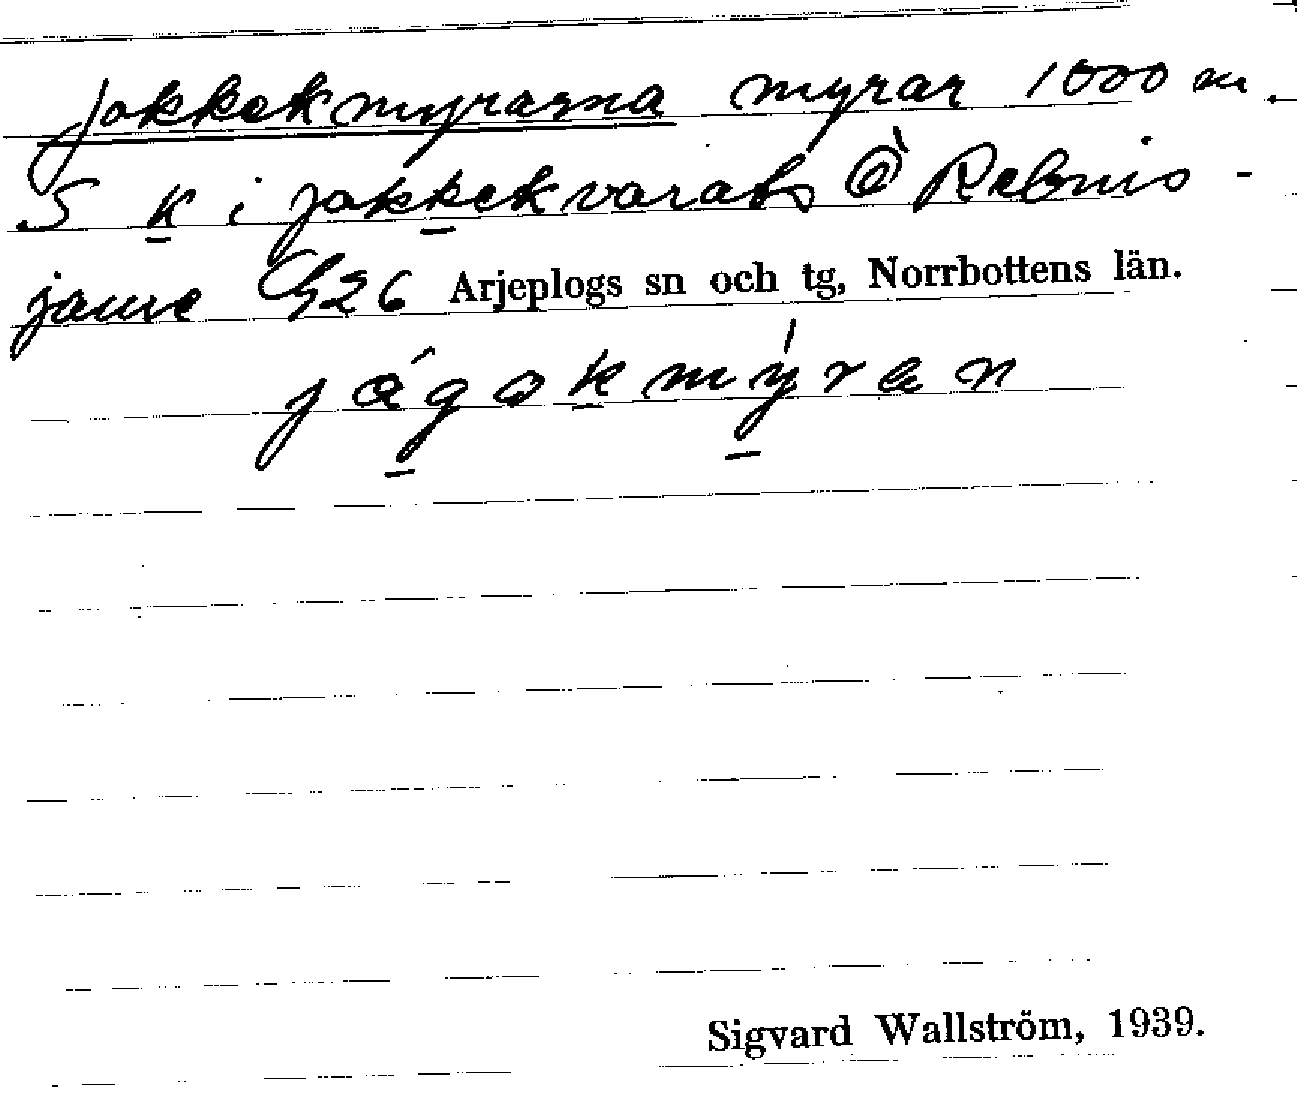 jokkekmyrarna myrar 1000 m
S k i jokkekvarats @ Rebnis-
jaure G26 Arjeplogs sn och tg, Norrbottens län.
jágakmýran
Sigvard Wallström, 1939.